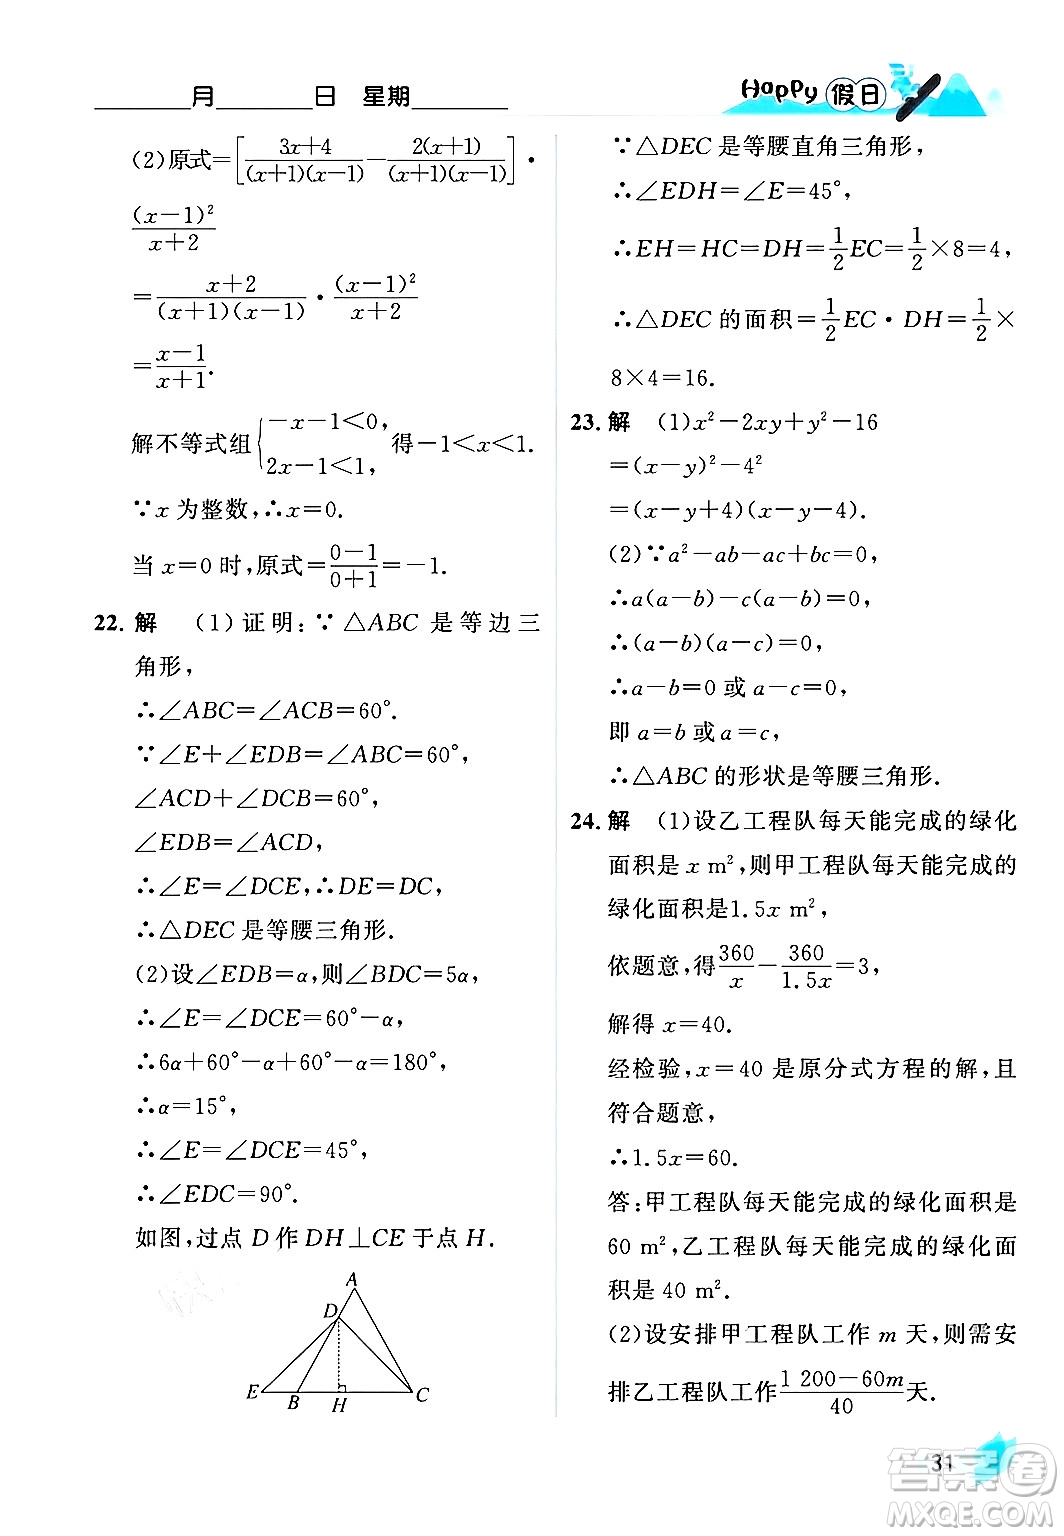 ______月______日 星期______
Happy 假日
(2)原式=[(3x+4)/((x+1)(x-1))-2(x+1)/((x+1)(x-1))]·
(x-1)²/(x+2)
=(x+2)/((x+1)(x-1))·(x-1)²/(x+2)
=(x-1)/(x+1).
解不等式组{-x-1<0, 2x-1<1, 得-1<x<1.
∵x 为整数,∴x=0.
当 x=0 时,原式=(0-1)/(0+1)=-1.
22. 解 (1)证明:∵△ABC 是等边三
角形,
∴∠ABC=∠ACB=60°.
∵∠E+∠EDB=∠ABC=60°,
∠ACD+∠DCB=60°,
∠EDB=∠ACD,
∴∠E=∠DCE,∴DE=DC,
∴△DEC 是等腰三角形.
(2)设∠EDB=α,则∠BDC=5α,
∴∠E=∠DCE=60°-α,
∴6α+60°-α+60°-α=180°,
∴α=15°,
∴∠E=∠DCE=45°,
∴∠EDC=90°.
如图,过点 D 作 DH⊥CE于点 H.
A
D
E B H C
∵△DEC 是等腰直角三角形,
∴∠EDH=∠E=45°,
∴EH=HC=DH=1/2EC=1/2×8=4,
∴△DEC 的面积=1/2EC·DH=1/2×
8×4=16.
23. 解 (1)x²-2xy+y²-16
=(x-y)²-4²
=(x-y+4)(x-y-4).
(2)∵a²-ab-ac+bc=0,
∴a(a-b)-c(a-b)=0,
∴(a-b)(a-c)=0,
∴a-b=0 或 a-c=0,
即 a=b 或 a=c,
∴△ABC 的形状是等腰三角形.
24. 解 (1)设乙工程队每天能完成的绿化
面积是 x m²,则甲工程队每天能完成的
绿化面积是1.5x m²,
依题意,得360/x-360/1.5x=3,
解得 x=40.
经检验,x=40 是原分式方程的解,且
符合题意,
∴1.5x=60.
答:甲工程队每天能完成的绿化面积是
60 m²,乙工程队每天能完成的绿化面
积是 40 m².
(2)设安排甲工程队工作 m 天,则需安
排乙工程队工作(1 200-60m)/40天.
31
答案卷
MXQE.COM